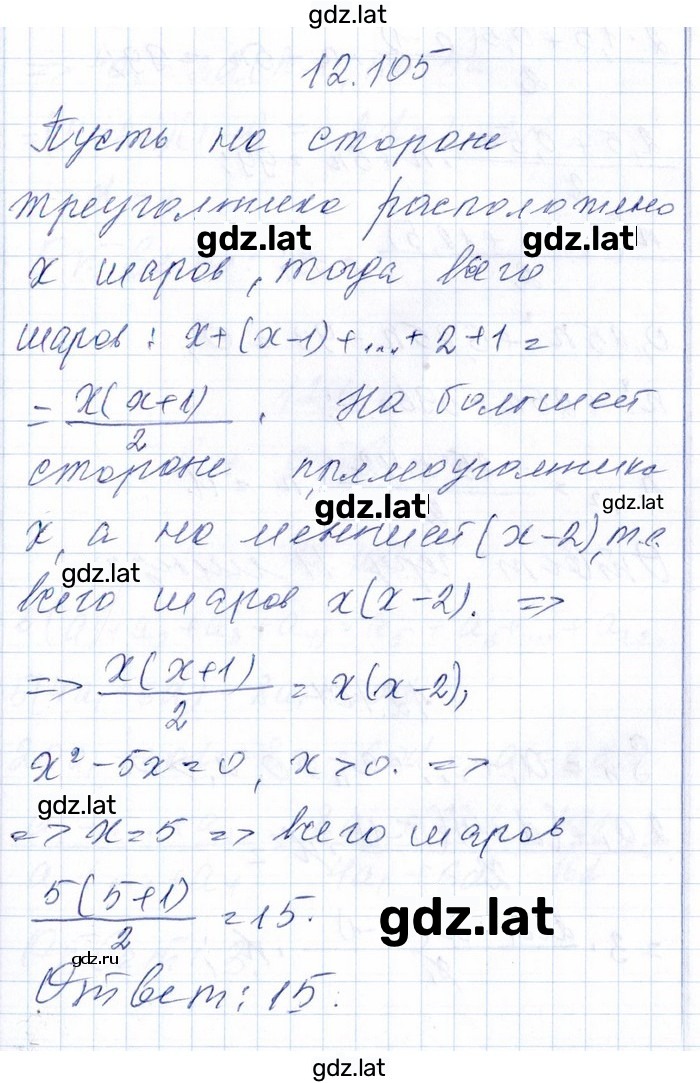 gdz.lat
12.105
Пусть на стороне
треуголника расположено
gdz.lat gdz.lat
x шаров, тогда всего
шаров: x+(x-1)+...+2+1=
= x(x+1)/2 . На большей
стороне прямоуголника
gdz.lat gdz.lat
x, а на меншей (x-2), т.е.
gdz.lat
всего шаров x(x-2). =>
=> x(x+1)/2 = x(x-2),
x²-5x=0, x>0. =>
gdz.lat
=> x=5 => всего шаров
5(5+1)/2 =15.
gdz.lat
gdz.ru
Ответ: 15.
gdz.lat